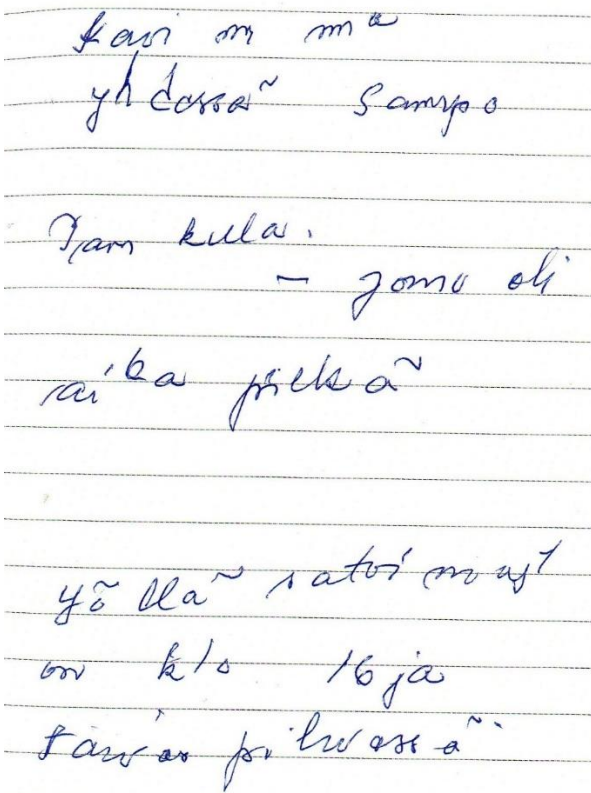 Kavi m m
yhdessä Sampo
kula.
– Jono oli
aika pitkä
yöllä satoi
on klo 16 ja
taivas pilvessä